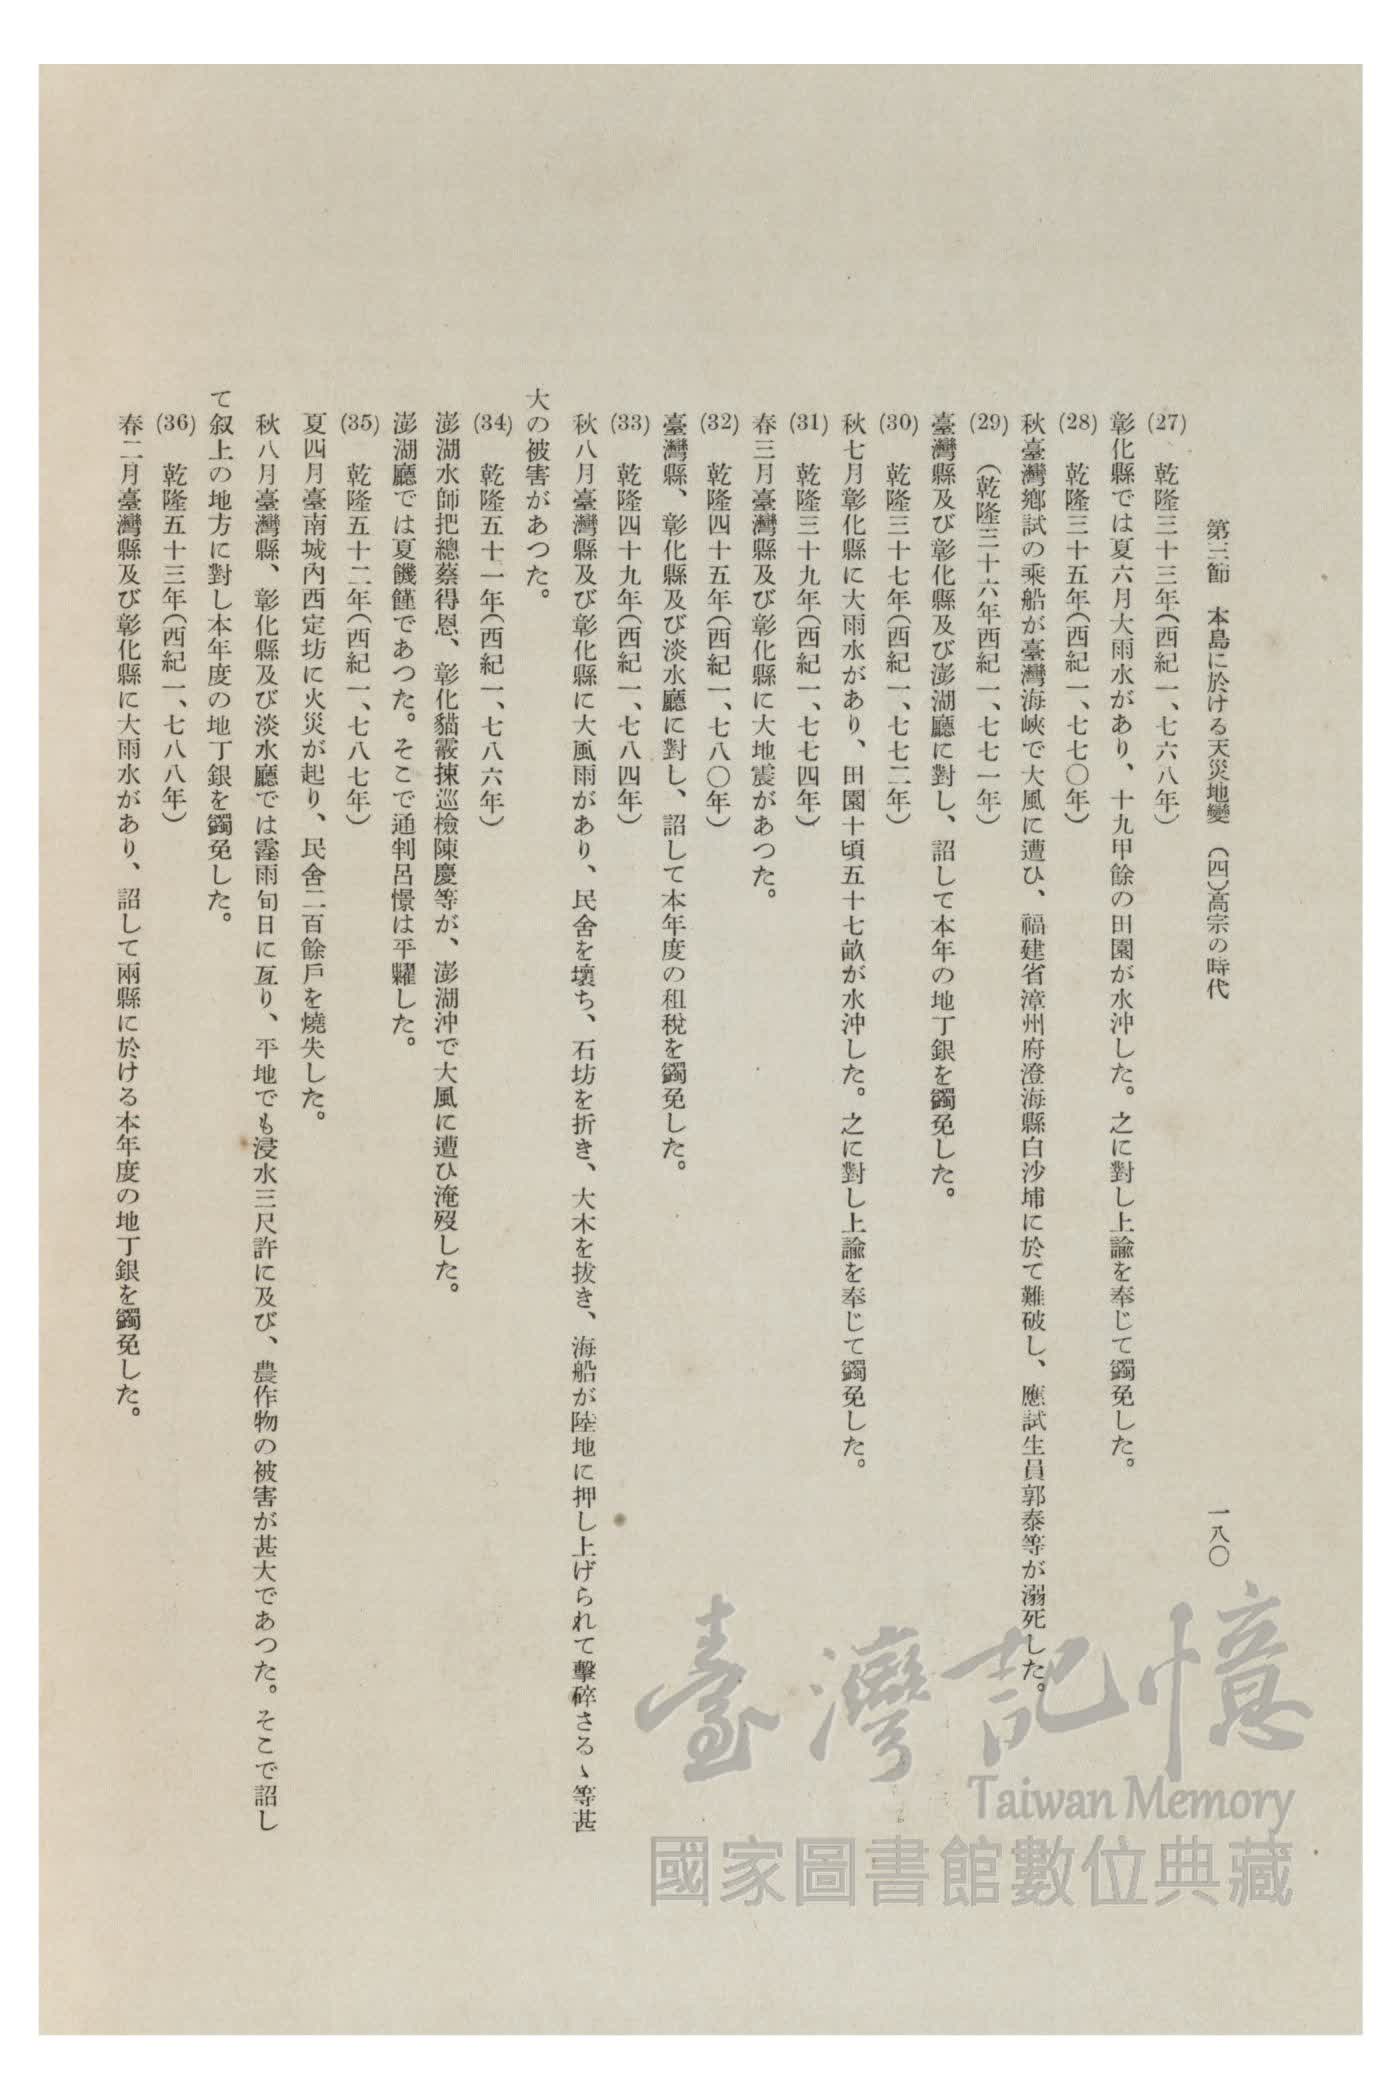 第三節　本島に於ける天災地變　(四)高宗の時代
一八〇
(27)　乾隆三十三年(西紀一、七六八年)
彰化縣では夏六月大雨水があり、十九甲餘の田園が水沖した。之に對し上諭を奉じて蠲免した。
(28)　乾隆三十五年(西紀一、七七〇年)
秋臺灣鄉試の乘船が臺灣海峽で大風に遭ひ、福建省漳州府澄海縣白沙埔に於て難破し、應試生員郭泰等が溺死した。
(29)　(乾隆三十六年西紀一、七七一年)
臺灣縣及び彰化縣及び澎湖廳に對し、詔して本年の地丁銀を蠲免した。
(30)　乾隆三十七年(西紀一、七七二年)
秋七月彰化縣に大雨水があり、田園十頃五十七畝が水沖した。之に對し上諭を奉じて蠲免した。
(31)　乾隆三十九年(西紀一、七七四年)
春三月臺灣縣及び彰化縣に大地震があつた。
(32)　乾隆四十五年(西紀一、七八〇年)
臺灣縣、彰化縣及び淡水廳に對し、詔して本年度の租稅を蠲免した。
(33)　乾隆四十九年(西紀一、七八四年)
秋八月臺灣縣及び彰化縣に大風雨があり、民舍を壞ち、石坊を折き、大木を拔き、海船が陸地に押し上げられて擊碎さるゝ等甚
大の被害があつた。
(34)　乾隆五十一年(西紀一、七八六年)
澎湖水師把總蔡得恩、彰化貓霧捒巡檢陳慶等が、澎湖沖で大風に遭ひ淹歿した。
澎湖廳では夏饑饉であつた。そこで通判呂憬は平糶した。
(35)　乾隆五十二年(西紀一、七八七年)
夏四月臺南城內西定坊に火災が起り、民舍二百餘戶を燒失した。
秋八月臺灣縣、彰化縣及び淡水廳では霪雨旬日に亙り、平地でも浸水三尺許に及び、農作物の被害が甚大であつた。そこで詔し
て叙上の地方に對し本年度の地丁銀を蠲免した。
(36)　乾隆五十三年(西紀一、七八八年)
春二月臺灣縣及び彰化縣に大雨水があり、詔して兩縣に於ける本年度の地丁銀を蠲免した。
臺灣記憶
Taiwan Memory
國家圖書館數位典藏